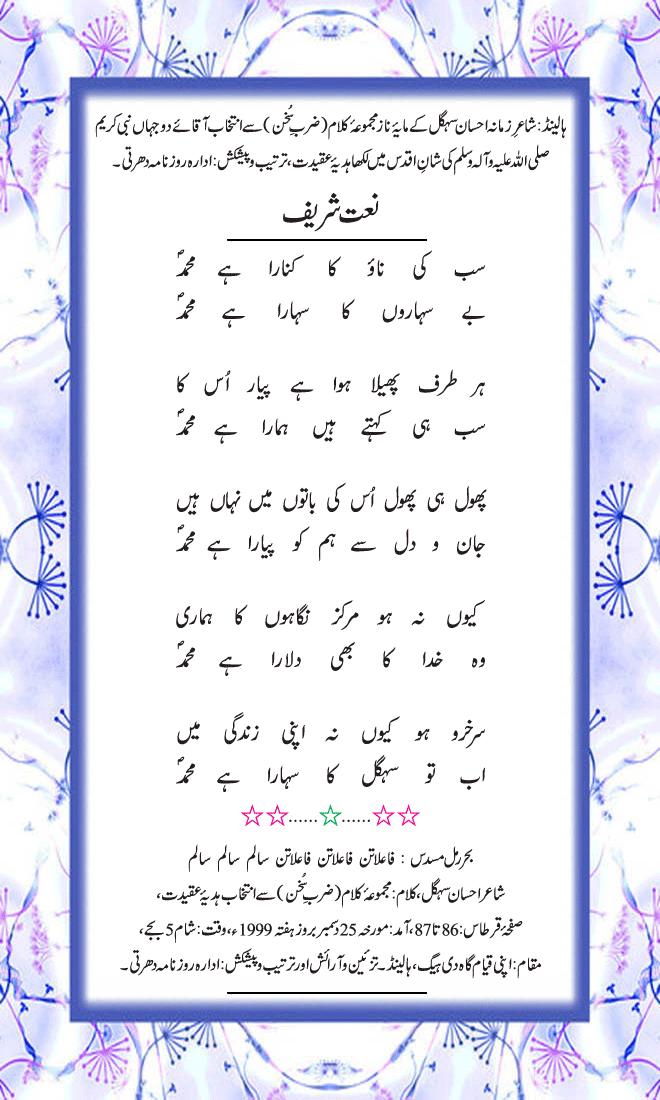 ہالینڈ: شاعرِ زمانہ احسان سہگل کے مایۂ ناز مجموعۂ کلام (ضربِ سُخن) سے انتخاب آقائے دو جہاں نبی کریم
صلی اللہ علیہ و آلہ وسلم کی شانِ اقدس میں لکھا ہدیۂ عقیدت، ترتیب و پیشکش: ادارہ روزنامہ دھرتی۔
نعت شریف
سب کی ناؤ کا کنارا ہے محمدؐ
بے سہاروں کا سہارا ہے محمدؐ
ہر طرف پھیلا ہوا ہے پیار اُس کا
سب ہی کہتے ہیں ہمارا ہے محمدؐ
پھول ہی پھول اُس کی باتوں میں نہاں ہیں
جان و دل سے ہم کو پیارا ہے محمدؐ
کیوں نہ ہو مرکز نگاہوں کا ہماری
وہ خدا کا بھی دلارا ہے محمدؐ
سرخرو ہو کیوں نہ اپنی زندگی میں
اب تو سہگل کا سہارا ہے محمدؐ
☆☆......☆......☆☆
بحر رمل مسدس : فاعلاتن فاعلاتن فاعلاتن سالم سالم سالم
شاعر احسان سہگل، کلام: مجموعۂ کلام (ضربِ سُخن) سے انتخاب ہدیۂ عقیدت،
صفحۂ قرطاس: 86 تا 87، آمد: مورخہ 25 دسمبر بروز ہفتہ 1999ء، وقت: شام 5 بجے،
مقام: اپنی قیام گاہ دی ہیگ، ہالینڈ۔ تزئین و آرائش اور ترتیب و پیشکش: ادارہ روزنامہ دھرتی۔